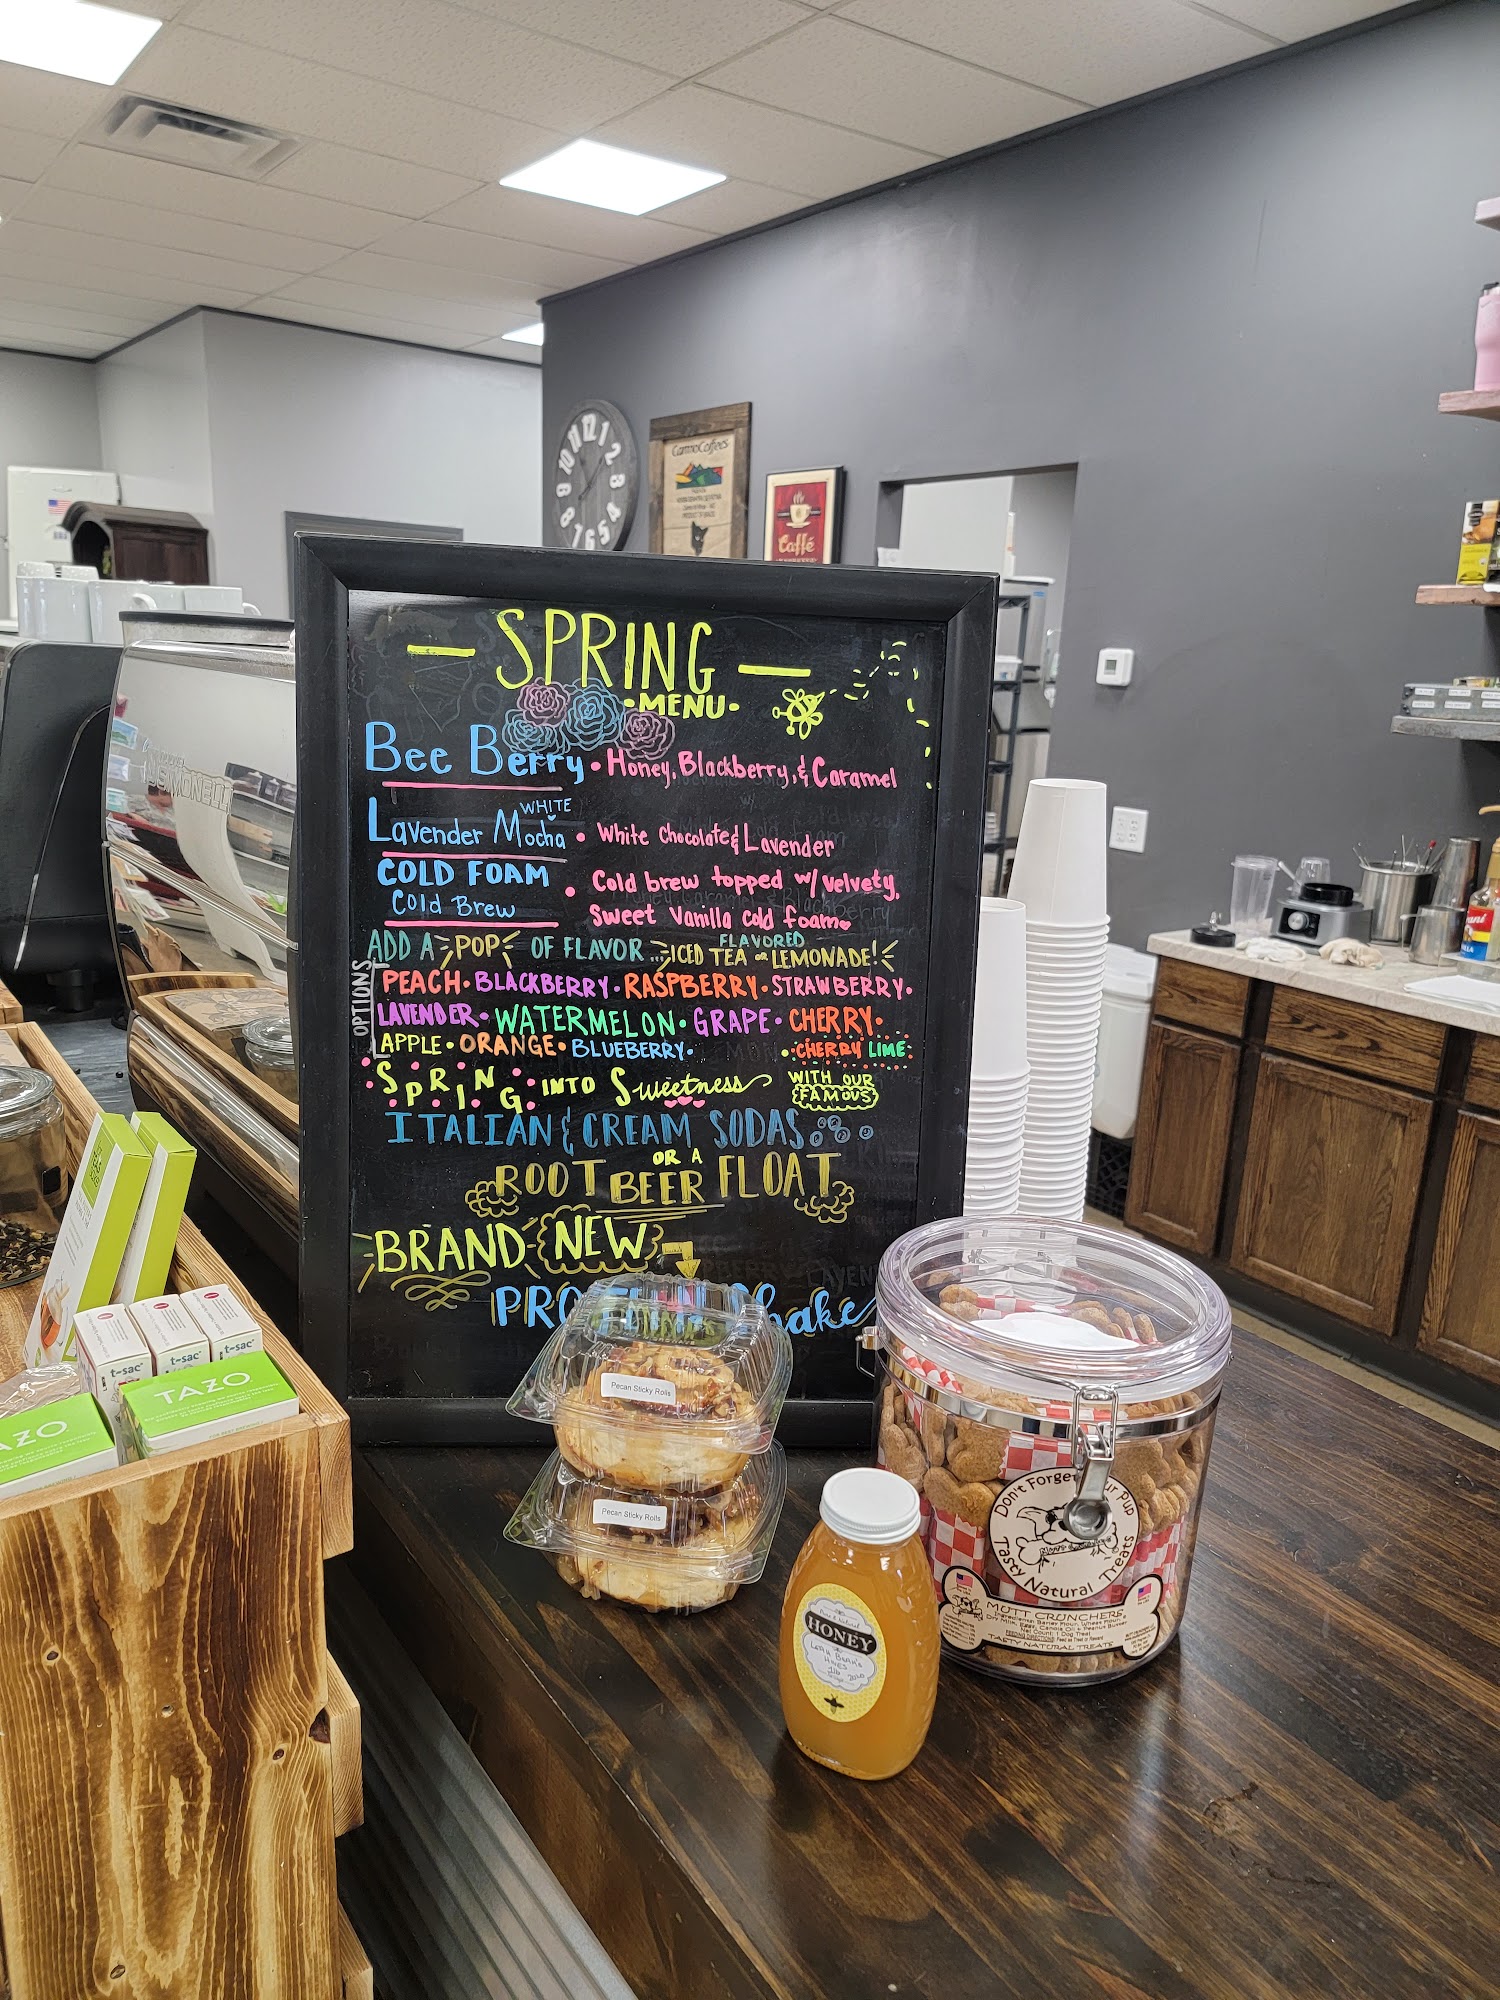 CarmoCoffees
Caffé
12
1
2
3
4
5
6
7
8
10
11
— SPRING —
•MENU•
Bee Berry • Honey, Blackberry, & Caramel
WHITE
Lavender Mocha • White Chocolate & Lavender
COLD FOAM • Cold brew topped w/ velvety,
Cold Brew Sweet Vanilla cold foam
ADD A POP OF FLAVOR... FLAVORED ICED TEA or LEMONADE!
OPTIONS
PEACH • BLACKBERRY • RASPBERRY • STRAWBERRY •
LAVENDER • WATERMELON • GRAPE • CHERRY •
APPLE • ORANGE • BLUEBERRY • CHERRY LIME
SPRING INTO Sweetness WITH OUR FAMOUS
ITALIAN & CREAM SODAS
OR A
ROOT BEER FLOAT
BRAND NEW
Shake
Pecan Sticky Rolls
Pecan Sticky Rolls
t-sac
t-sac
TAZO
AZO
HONEY
Don't Forget Your Pup
Tasty Natural Treats
MUTT CRUNCHERS
TASTY NATURAL TREATS